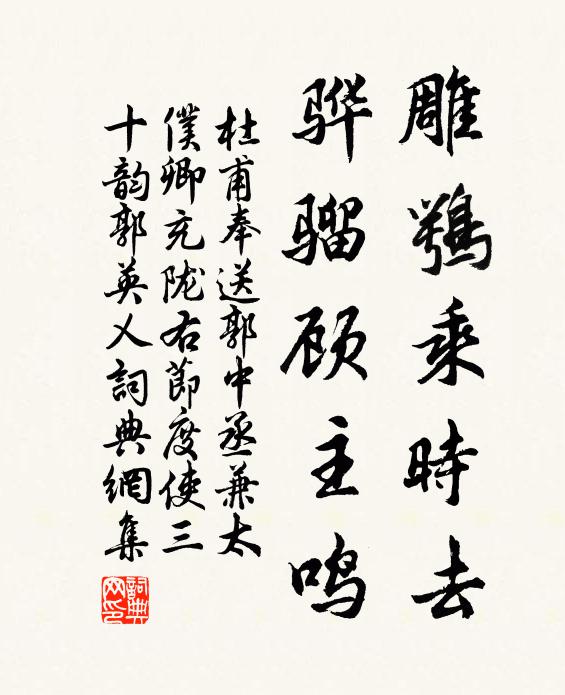 雕鶚乘時去
骅骝顾主鸣
杜甫奉送郭中丞兼太
僕卿充陇右節度使三
十韵郭英乂詞典網集
詞典
网印